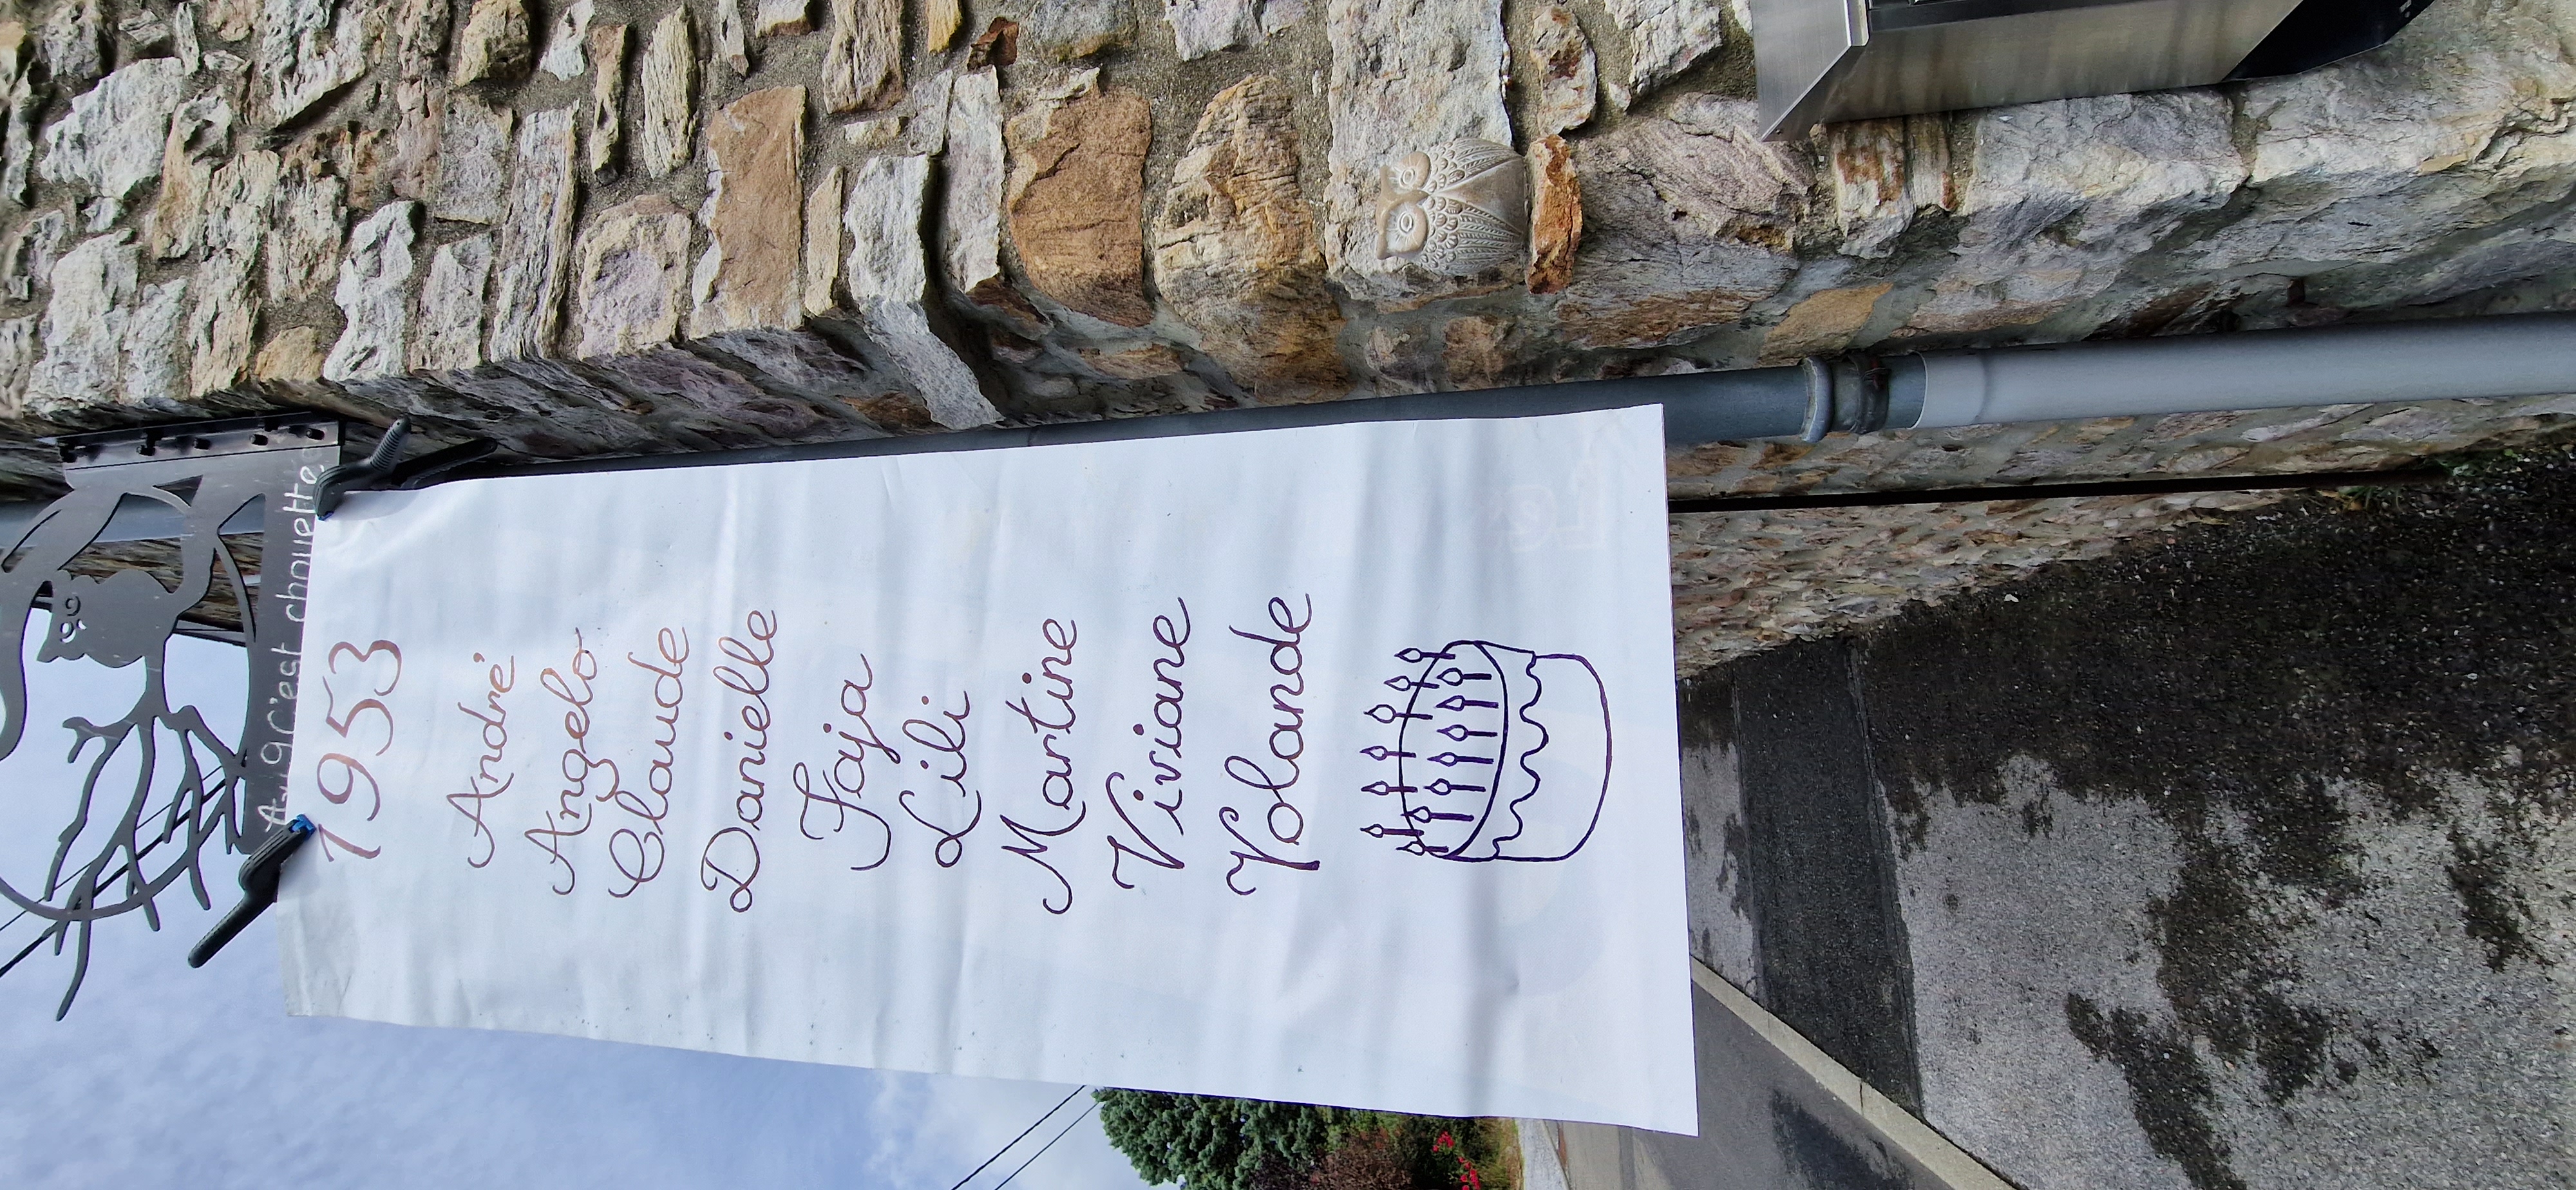 Au 9 c'est chouette
1953
André
Angelo
Claude
Danielle
Jaja
Lili
Martine
Viviane
Yolande